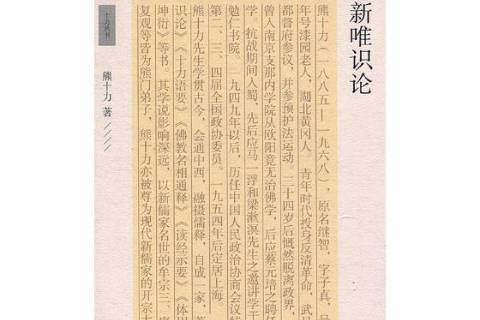 新唯识论
熊十力（一八八五—一九六八），原名继智，字子真，号
年号漆园老人，湖北黄冈人。青年时代投身反清革命，武昌
都督府参议，并参预护法运动，三十四岁后慨然脱离政界，
曾入南京支那内学院从欧阳竟无治佛学，后应蔡元培之聘任
学。抗战期间入蜀，先后应马一浮和梁漱溟先生之邀讲学于
勉仁书院。一九四九年以后，历任中国人民政治协商会议特
第二、三、四届全国政协委员。一九五四年后定居上海。
熊十力先生学贯古今，会通中西，融摄儒释，自成一家，著
识论》《十力语要》《佛教名相通释》《读经示要》《体用
坤衍》等书。其学说影响深远，以新儒家名世的牟宗三、唐
复观等皆为熊门弟子，熊十力亦被尊为现代新儒家的开宗大
熊十力 著